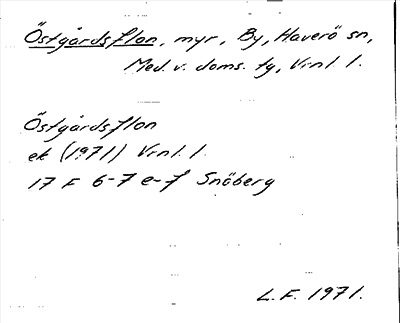 Östgårdsflon, myr, By, Haverö sn,
Med. v. doms. tg, Vrnl l.
Östgårdsflon
ek (1971) Vrnl. l.
17 F 6-7 e-f Snöberg
L.F. 1971.